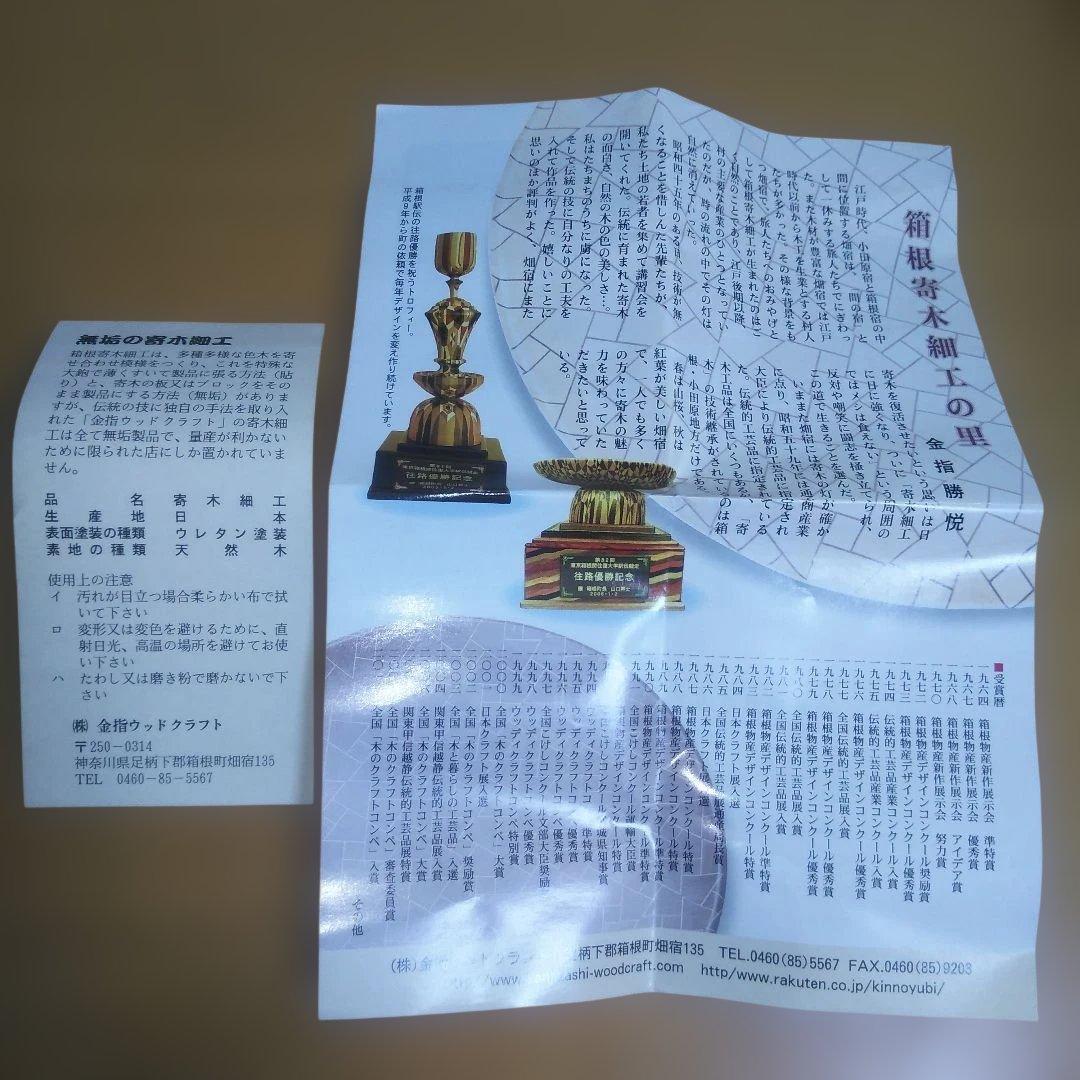 無垢の寄木細工
箱根寄木細工は、多種多様な色木を寄
せ合わせ模様をつくり、これを特殊な
大鉋で薄くすいて製品に張る方法（貼
り）と、寄木の板又はブロックをその
まま製品にする方法（無垢）がありま
すが、伝統の技に独自の手法を取り入
れた「金指ウッドクラフト」の寄木細
工は全て無垢製品で、量産が利かない
ために限られた店にしか置かれていま
せん。
品名 寄木細工
生産地 日本
表面塗装の種類 ウレタン塗装
素地の種類 天然木
使用上の注意
イ 汚れが目立つ場合柔らかい布で拭
いて下さい
ロ 変形又は変色を避けるために、直
射日光、高温の場所を避けてお使
い下さい
ハ たわし又は磨き粉で磨かないで下
さい
㈱ 金指ウッドクラフト
〒250-0314
神奈川県足柄下郡箱根町畑宿135
TEL 0460-85-5567
箱根寄木細工の里
金指勝悦
江戸時代、小田原宿と箱根宿の中
間に位置する畑宿は、「間の宿」と
して一休みする旅人たちでにぎわっ
た。また木材が豊富な畑宿では江戸
時代以前から木工を生業とする村人
たちが多かった。その様な背景をも
つ畑宿で、旅人たちへのおみやげと
して箱根寄木細工が生まれたのはご
く自然のことであり、江戸後期以降、
村の主要な産業のひとつとなってい
たのだが、時の流れの中でその灯は
自然に消えていった。
昭和四十五年のある日、技術が無
くなることを惜しんだ先輩たちが、
私たち土地の若者を集めて講習会を
開いてくれた。伝統に育まれた寄木
の面白さ、自然の木の色の美しさ…。
私はたちまちのうちに虜になった。
そして伝統の技に自分なりの工夫を
入れて作品を作った。嬉しいことに
思いのほか評判がよく、畑宿にまた
寄木を復活させたいという思いは日
に日に強くなり、ついに「寄木細工
ではメシは食えない」という周囲の
反対や嘲笑に闘志を掻き立てられ、
この道で生きることを選んだ。
いまでは畑宿には寄木の灯が確か
に点り、昭和五十九年には通商産業
大臣により伝統的工芸品に指定され
た。伝統的工芸品に指定されている
木工品は全国にいくつもあるが、「寄
木」の技術継承がされているのは箱
根・小田原地方だけである。
春は山桜、秋は
紅葉が美しい畑宿
で、一人でも多く
の方々に寄木の魅
力を味わっていた
だきたいと思って
いる。
箱根駅伝の往路優勝を祝うトロフィー。
平成9年から町の依頼で毎年デザインを変え作り続けています。
往路優勝記念
第82回
東京箱根間往復大学駅伝競走
往路優勝記念
箱根町長 山口昇士
2006.1.2
■受賞暦
一九六四 箱根物産新作展示会 準特賞
一九六七 箱根物産新作展示会 優秀賞
一九六八 箱根物産新作展示会 アイデア賞
一九七〇 箱根物産新作展示会 努力賞
一九七二 箱根物産デザインコンクール奨励賞
一九七三 箱根物産デザインコンクール優秀賞
一九七四 伝統的工芸品産業コンクール優秀賞
一九七五 伝統的工芸品産業コンクール入賞
箱根物産デザインコンクール優秀賞
全国伝統的工芸品展入賞
箱根物産デザインコンクール優秀賞
一九七九 箱根物産デザインコンクール優秀賞
一九八〇 全国伝統的工芸品展入賞
一九八一 箱根物産デザインコンクール準特賞
箱根物産デザインコンクール特賞
日本クラフト展入選
全国伝統的工芸品展
日本クラフト展入選
箱根物産デザインコンクール特賞
箱根物産デザインコンクール準特賞
箱根物産デザインコンクール特賞
全国こけしコンクール運輸大臣賞
全国こけしコンクール宮城県知事賞
ウッディクラフトコンペ準特賞
ウッディクラフトコンペ優秀賞
全国こけしコンクール文部大臣奨励
ウッディクラフトコンペ特別賞
全国「木のクラフトコンペ」大賞
日本クラフト展入選
全国「木のクラフトコンペ」奨励賞
全国「木と暮らしの工芸品」入選
関東甲信越静伝統的工芸品展入賞
全国「木のクラフトコンペ」大賞
関東甲信越静伝統的工芸品展特賞
全国「木のクラフトコンペ」審査委員賞
全国「木のクラフトコンペ」入賞
その他
柄下郡箱根町畑宿135 TEL.0460(85)5567 FAX.0460(85)9203
ashi-woodcraft.com http/www.rakuten.co.jp/kinnoyubi/